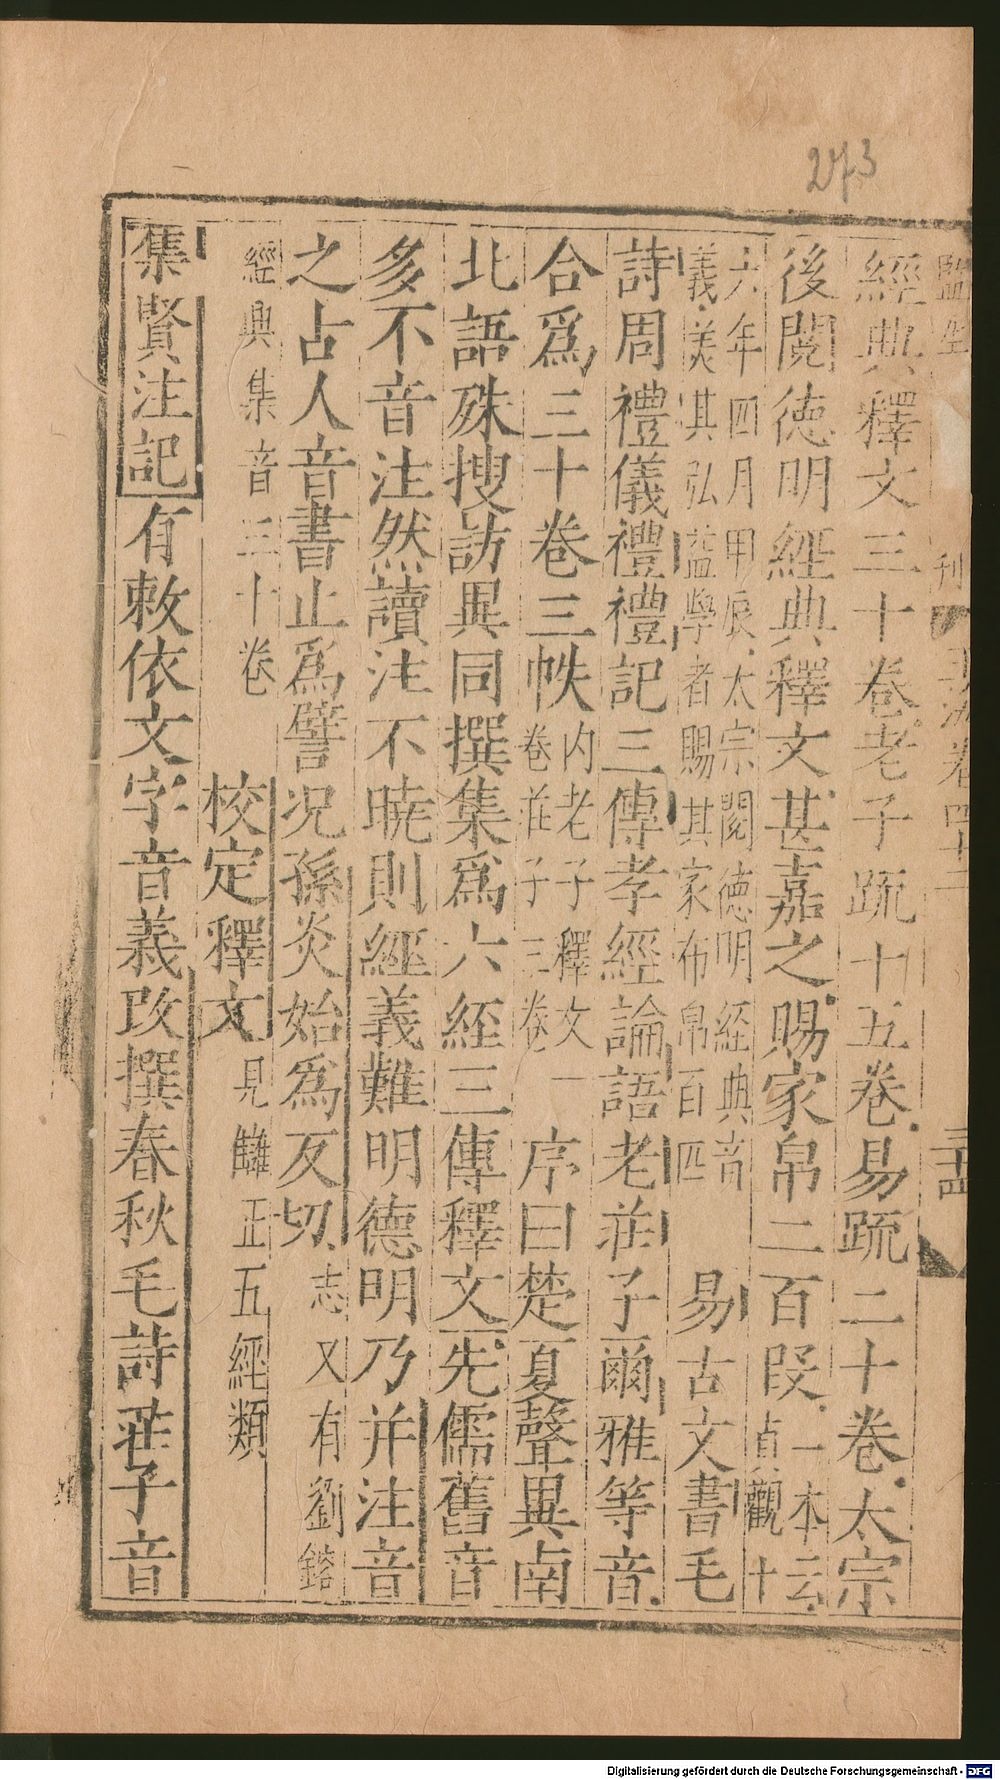 273
監生 刊 玉海卷四十二 三十四
經典釋文三十卷老子疏十五卷易疏二十卷太宗
後閱德明經典釋文甚嘉之賜家帛二百段一本云貞觀十
六年四月甲辰太宗閱德明經典音義美其弘益學者賜其家布帛百匹 易古文書毛
詩周禮儀禮禮記三傳孝經論語老莊子爾雅等音
合爲三十卷三帙内老子釋文一卷莊子三卷 序曰楚夏聲異南
北語殊搜訪異同撰集爲六經三傳釋文先儒舊音
多不音注然讀注不曉則經義難明德明乃并注音
之占人音書止爲譬况孫炎始爲反切志又有劉鎔
經典集音三十卷 校定釋文見讎正五經類
集賢注記有敕依文字音義改撰春秋毛詩莊子音
Digitalisierung gefördert durch die Deutsche Forschungsgemeinschaft - DFG